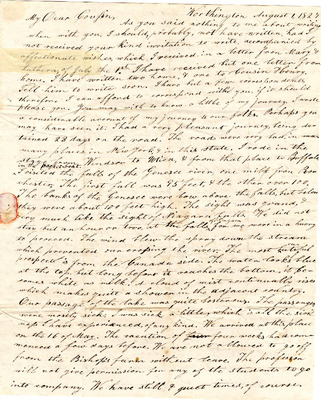 Worthington August 1, 1827
My Dear Cousin,
As you said nothing to me about writing
when with you I should, probably, not have written had I
not received your kind invitation to write accompanied by
affectionate wishes which I received in a letter from Mary &
of the 1st. I have received but one letter from
home, I have written two home, & one to Cousin Henry.
Tell him to write soon. I have but a few correspondents
therefore I can afford to correspond with you if it should
please you. You may wish to know a little of my journey. I wrote
a considerable account of my journey to our folks. Perhaps you
may have seen it. I had a very pleasant journey, being de-
tained 22 days on the road. The roads were very bad in many
many places in New York & in this state. I rode in the
stage from Hudson to Utica, & from that place to Buffalo
in the packet boat.
I visited the falls of the Genesee river one mile from Ro-
chester. The first fall was 75 feet & the other over 100.
The banks of the Genesee were low above the falls, but below
they were about 100 feet high. The sight was grand, &
very much like the sight of Niagara falls. We did not
stay but an hour or two at the falls, for we were in a hurry
to proceed. The wind blew the spray down the stream
which prevented our crossing the river. The most beautiful
prospect is from the Canada side. The water looks blue
at the top, but long before it reaches the bottom, it be-
comes white as milk. A cloud of mist continually rises
which makes quite a shower in the adjacent country.
Our passage of the lake was quite boisterous. The passengers
were mostly sick. I was sick a little, which is all the sick-
ness I have experienced, of any kind. We arrived at this place
on the 16 of May. The vacation of four weeks had com-
menced a few days before. We are not allowed to go off
from the Bishops farm without leave. The professor
will not give permission for any of the students to go
into company. We have still & quiet times, of course.